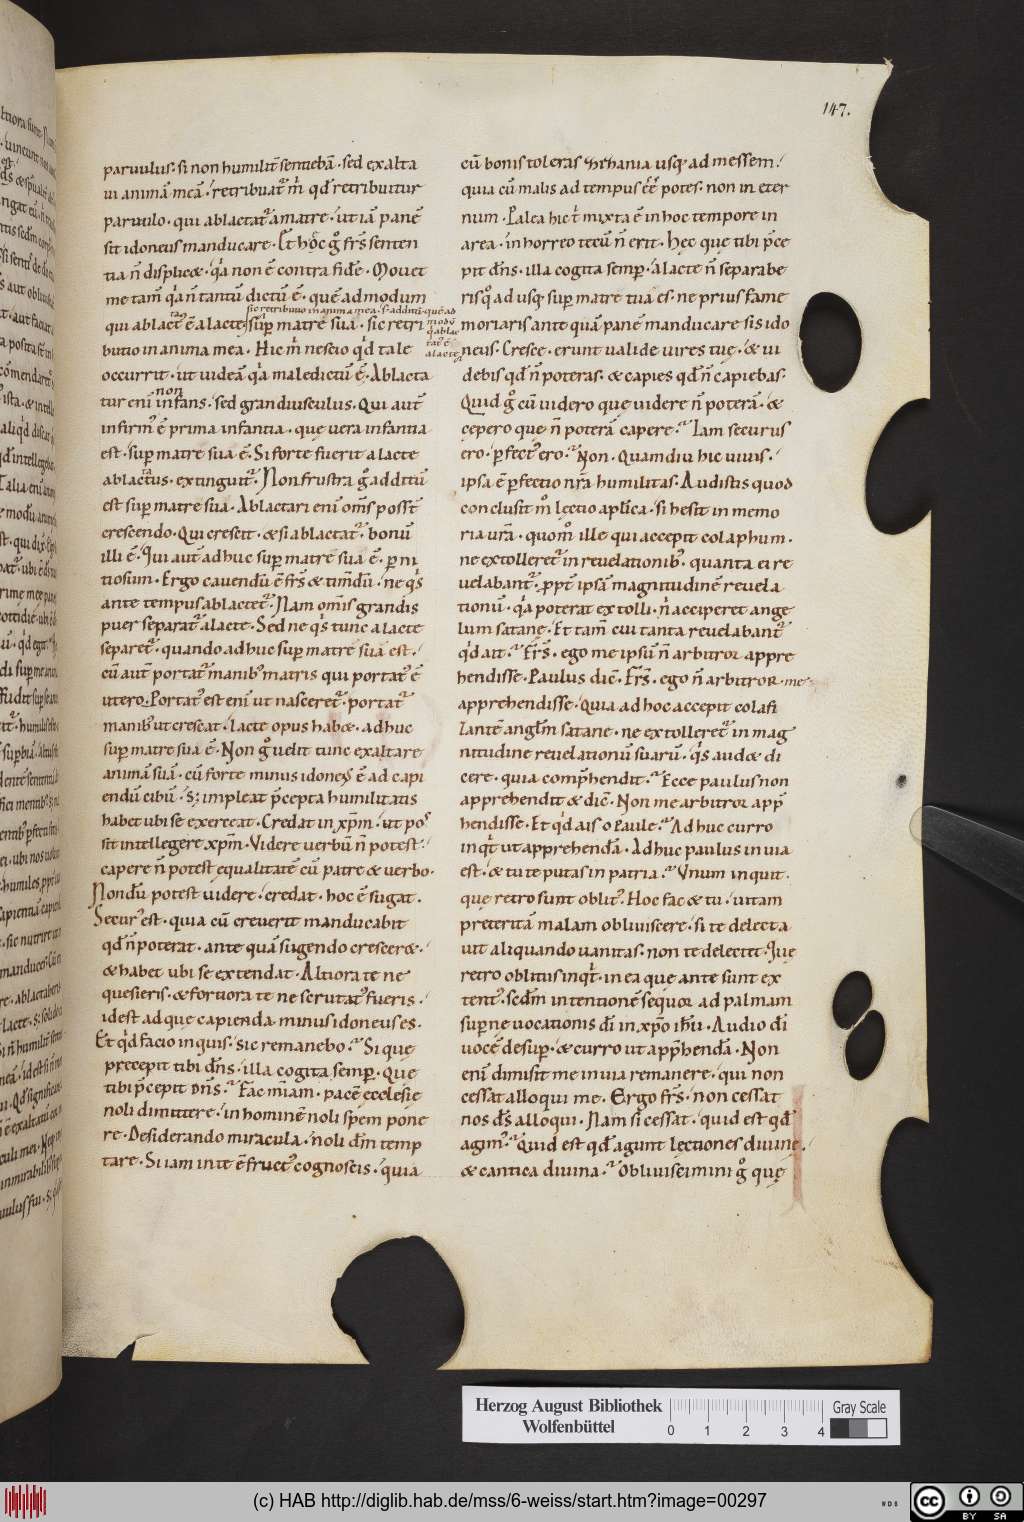 147.
paruulus. si non humilit̄ sentiebā. sed exalta
ui animā meā. retribuat᷑ m̄ qd̄ retribuitur
paruulo. qui ablactat᷑ a matre. ut iā panē
sit idoneus manducare. Et hęc g̊ fr̄s senten
tia n̄ displicet. qᷓa non ē contra fidē. Mouet
me tam̄ qᷓa n̄ tantū dictū ē. quē admodum
sic retribuio in anima mea. s; additū. quē ad
modū
qui ablactat᷑ ē a lacte sup matrē suā. sic retri
qui ablac
tat᷑ ē
a lacte
butio in anima mea. Hic m̄ nescio qd̄ tale
occurrit. ut uideā qᷓa maledictū ē. Ablacta
non
tur enī infans. sed grandiusculus. Qui aut̄
infirm᷑ ē prima infantia. que uera infantia
est. sup matrē suā ē. Si forte fuerit a lacte
ablactatus. extinguit᷑. Non frustra g̊ additū
est sup matrē suā. Ablactari enī om̄s poss̄t
crescendo. Qui crescit. & si ablactat᷑. bonū
illi ē. Qui aut̄ adhuc sup matrē suā ē. p ni
tiosum. Ergo cauendū ē fr̄s & timdū. ne q̄s
ante tempus ablactet᷑. Nam om̄is grandis
puer separat᷑ a lacte. Sed ne q̄s tunc a lacte
separet᷑. quando adhuc sup matrē suā est.
cū aut̄ portat᷑ manib; matris qui portat᷑ ē
utero. Portat᷑ est enī ut nasceret᷑. portat᷑
manib; ut crescat. Lacte opus habet. adhuc
sup matrē suā ē. Non g̊ uelit tunc exaltare
animā suā. cū forte minus idoneus ē ad capi
endū cibū. s; impleat p̄cepta humilitatis
habet ubi se exerceat. Credat in xp̄m. ut pos
sit intellegere xp̄m. Videre uerbū n̄ potest.
capere n̄ potest equalitatē cū patre & uerbo.
Nondū potest uidere. credat. hoc ē sugat.
Secur᷑ est. quia cū creuerit manducabit
qd̄ n̄ poterat. ante quā sugendo crescer&.
& habet ubi se extendat. Altiora te ne
quesieris. & fortiora te ne scrutat᷑ fueris.
idest ad que capienda minus idoneus es.
Et qd̄ facio inquis. sic remanebo. Si que
precepit tibi dn̄s. illa cogita semp. Que
tibi p̄cepit dn̄s. Fac m̄iam. pacē ecclesię
noli dimittere. in hominē noli spem pone
re. Desiderando miracula. noli dm̄ temp
tare. Si iam in te ē fruct᷑ cognoscis. quia
cū bonis toleras zizania usq; ad messem.
quia cū malis ad tempus ēē potes. non in eter
num. Palea hic t̄ mixta ē in hoc tempore in
area. in horreo tecū n̄ erit. Hęc quę tibi p̄ce
pit dn̄s. illa cogita semp. a lacte n̄ separabe
ris q̊ ad usq; sup matrē tuā es. ne prius fame
moriaris ante quā panē manducare sis ido
neus. Cresce. erunt ualide uires tuę. & ui
debis qd̄ n̄ poteras. & capies qd̄ n̄ capiebas.
Quid g̊ cū uidero que uidere n̄ poterā. &
cepero que n̄ poterā capere. Iam securus
ero. pfect᷑ ero. Non. Quamdiu hic uiuis.
ipsa ē pfectio nr̄a humilitas. Audistis quod
conclusit m̊ lectio apl̄ica. si hesit in memo
ria ur̄a. quom̊ ille qui accepit colaphum.
ne extolleret᷑ in reuelationib;. quanta ei re
uelabant᷑. ppt̄ ipsā magnitudinē reuela
tionū. qᷓa poterat extolli. n̄ acciperet ange
lum satanę. Et tam̄ cui tanta reuelabant᷑
qd̄ ait. Fr̄s. ego me ipsū n̄ arbitror appre
hendisse. Paulus dic̄. Fr̄s. ego n̄ arbitror me
apprehendisse. Quia ad hoc accepit colafi
zantē anglm̄ satane. ne extolleret᷑ in mag
nitudine reuelationū suarū. q̄s audet di
cere. quia comp̄hendit. Ecce paulus non
apprehendit & dic̄. Non me arbitror app̄
hendisse. Et qd̄ ais o Paule. Adhuc curro
inqt̄ ut apprehendā. Adhuc paulus in uia
est. & tu te putas in patria. Vnum inquit.
que retro sunt oblit᷑. Hoc fac & tu. uitam
preteritā malam obliuiscere. si te delecta
uit aliquando uanitas. non te delectet. Que
retro oblitus inqt̄. in ea que ante sunt ex
tent᷑. sedm̄ intentionē sequor ad palmam
supne uocationis di in xp̄o ih̄u. Audio di
uocē desup. & curro ut app̄hendā. Non
enī dimisit me in uia remanere. qui non
cessat alloqui me. Ergo fr̄s. non cessat
nos ds̄ alloqui. Nam si cessat. quid est qd̄
agim᷑. Quid est qd̄ agunt lectiones diuinę.
& cantica diuina. Obliuiscimini g̊ quę
Herzog August Bibliothek
Wolfenbüttel
0 1 2 3 4
Gray Scale
(c) HAB http://diglib.hab.de/mss/6-weiss/start.htm?image=00297
WDB
cc
BY SA